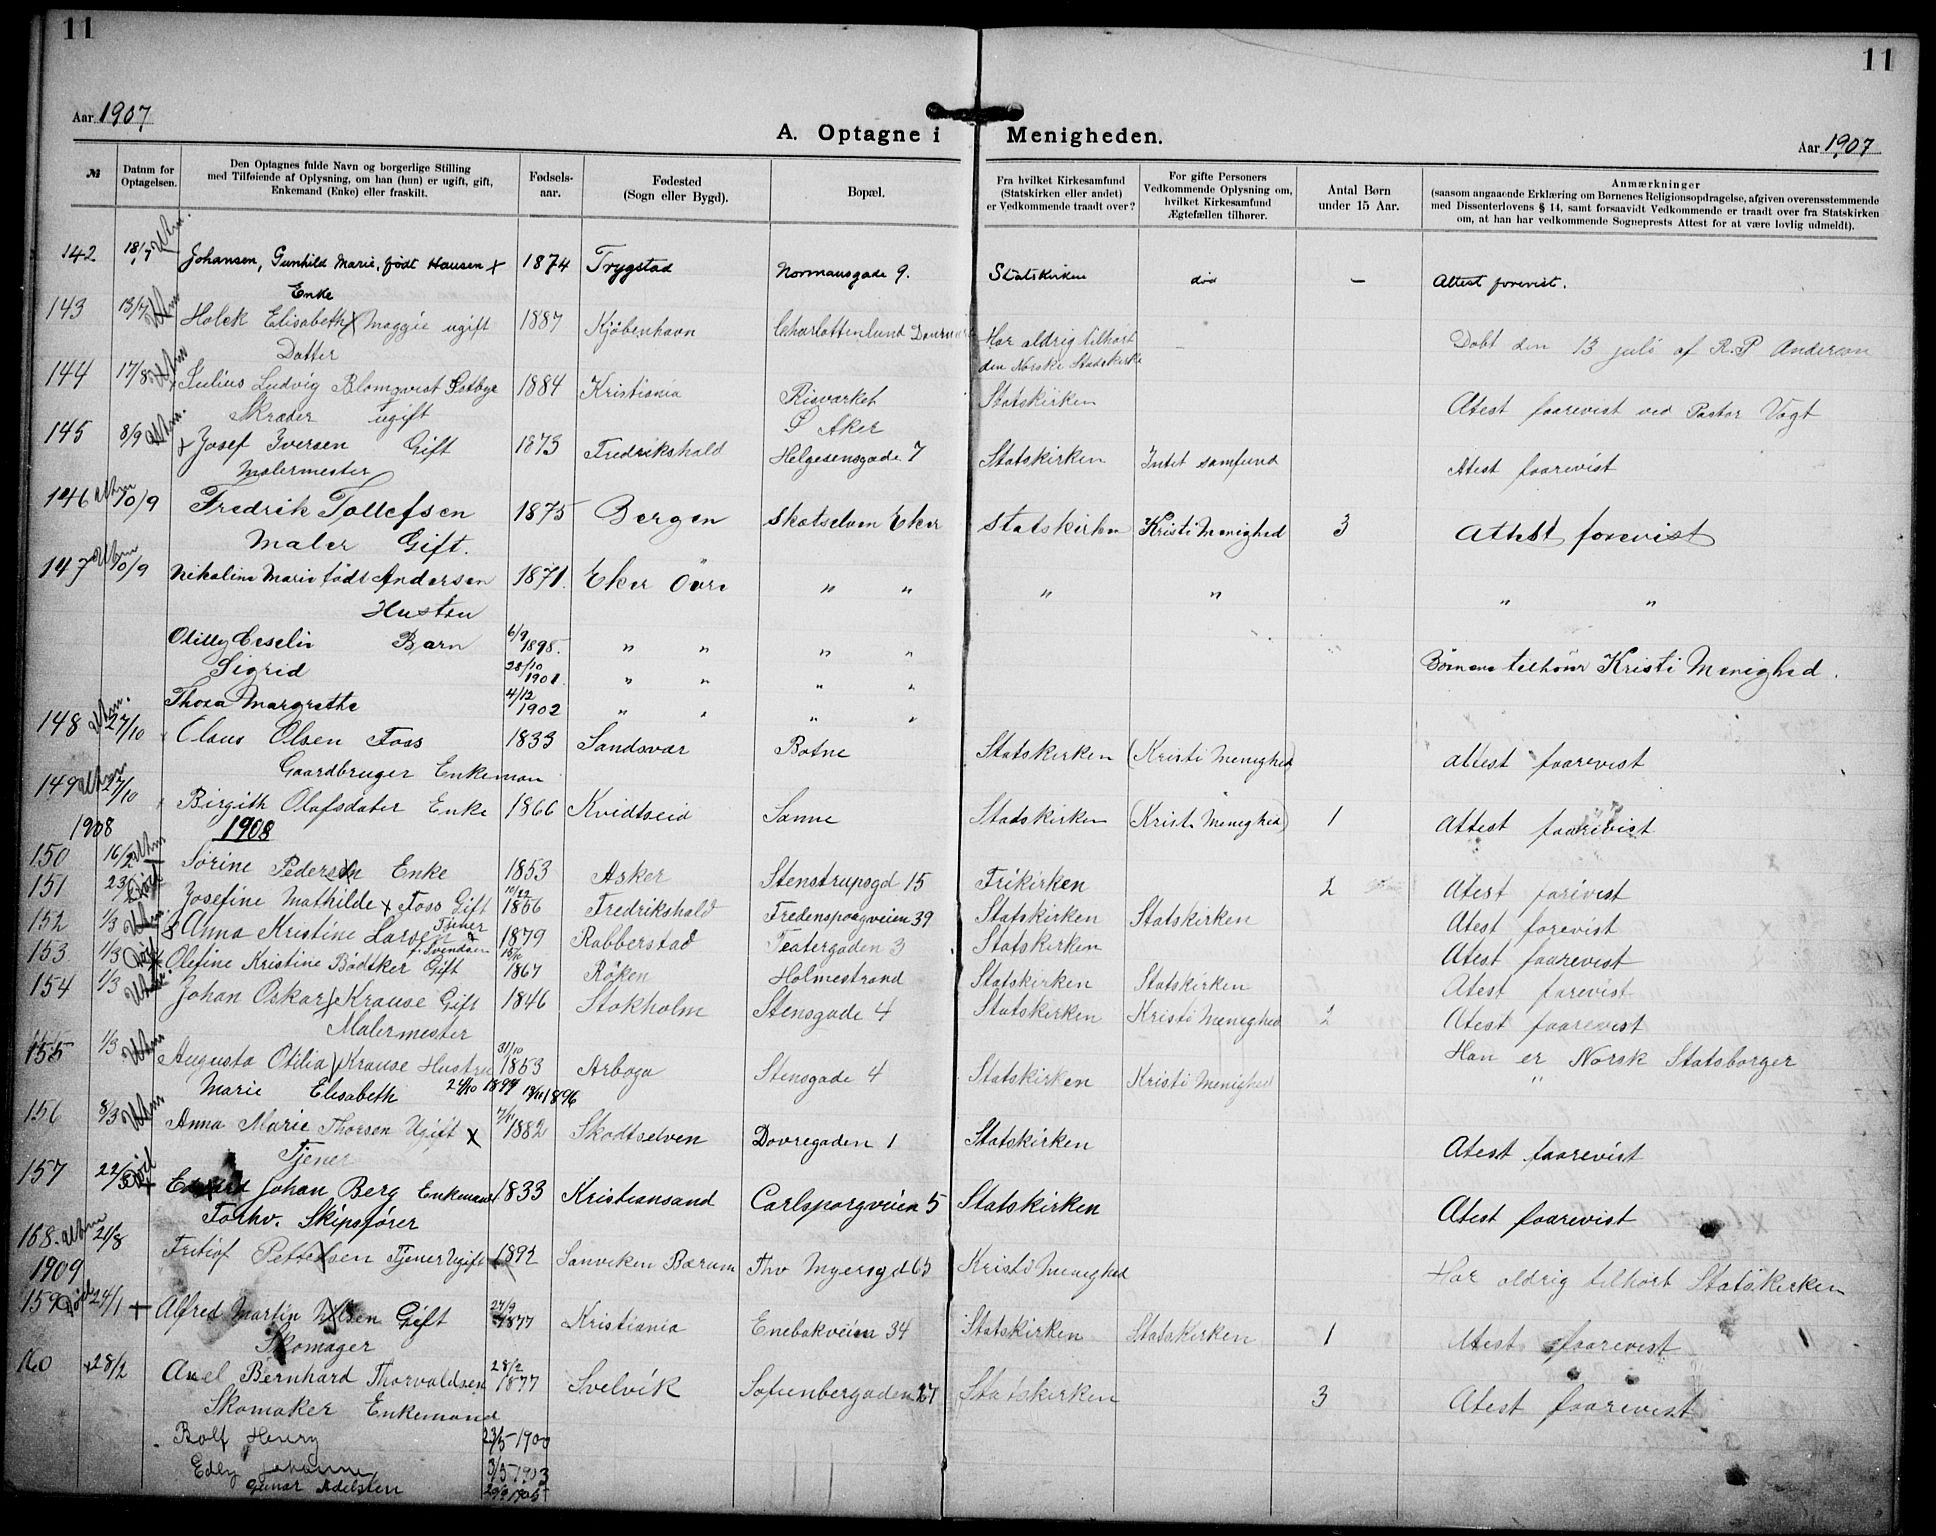 11
11
Aar 1907
A. Optagne i Menigheden.
Aar 1907
№
Datum for Optagelsen.
Den Optagnes fulde Navn og borgerlige Stilling
med Tilføiende af Oplysning, om han (hun) er ugift, gift,
Enkemand (Enke) eller fraskilt.
Fødsels-
aar.
Fødested
(Sogn eller Bygd).
Bopæl.
Fra hvilket Kirkesamfund
(Statskirken eller andet)
er Vedkommende traadt over?
For gifte Personers
Vedkommende Oplysning om,
hvilket Kirkesamfund
Ægtefællen tilhører.
Antal Børn
under 15 Aar.
Anmærkninger
(saasom angaaende Erklæring om Børnenes Religionsopdragelse, afgiven overensstemmende
med Dissenterlovens § 14, samt forsaavidt Vedkommende er traadt over fra Statskirken
om, at han har vedkommende Sogneprests Attest for at være lovlig udmeldt).
142 18/7 Uhm. Johansen, Gunhild Marie, født Hansen x 1874 Trygstad Normansgade 9. Statskirken död — Attest forevist.
Enke
143 13/7 Uhm Holck Elisabeth x Maggie ugift 1887 Kjøbenhavn Charlottenlund Har aldrig tilhört Døbt den 13 juli af R. P Anderson
Datter den Norske Statskirke
144 17/8 Uhm Julius Ludvig Blomqvist Sætbye 1884 Kristiania Risvarket Statskirken Atest faarevist ved Pastor Vogt
Skræder ugift Ö Aker
145 8/9 Uhm. x Josef Iversen Gift 1873 Fredrikshald Helgesensgade 7 Statskirken Intet samfund Atest faarevist
Malermester
146 Uhm 10/9 Fredrik Tollefsen 1875 Bergen Skotselven Eker Statskirken Kristi Menighed 3 Attest forevist
Maler Gift.
147 Uhm 10/9 Nikoline Marie födt Andersen 1871. Eker Övre " " " " " "
Hustru
Otilly Barn 6/9 1898. " " " "
Sigrid 28/10 1901. " " " " Börnene tilhörer Kristi Menighed.
Thora Margrethe 4/12 1902 " " " "
148 Uhm. 27/10 Claus Olsen Foss 1833 Sandsvær Botne Statskirken (Kristi Menighed) attest faarevist
Gaardbruger Enkeman
149 Uhm 27/10 Birgith Olafsdater Enke 1866 Kvidtseid Sanne Statskirken (Kristi Menighed) 1 Attest faarevist
1908 1908
150 16/2 Uhm Sörine Pedersen Enke 1853 Asker Stenstrupsgd 15 Frikirken 2 Atest forevist
151 23/2 Död Josefine Mathilde x Foss Gift 10/22 1856 Fredrikshald Fredensporgveien 39 Statskirken Statskirken Atest forevist
152 1/3 Uhm. x Anna Kristine Larsen Tjener 1879 Rabberstad Teatergaden 3 Statskirken Atest faarevist
153 1/3 Död Olefine Kristine Bødtker f. Svendsen Gift 1867 Röken Holmestrand Statskirken Statskirken Atest farevist
154 1/3 Uhm. Johan Oskar x Krause Gift 1846 Stokholm Stensgade 4 Statskirken Kristi Menighed 2 Atest faarevist
Malermester Han er Norsk Statsborger
155 1/3 Uhm Augusta Otilia x Krause Hustru 31/10 1853 Arboga Stensgade 4 Statskirken Kristi Menighed "
Marie Elisabeth 24/10 1894 13/11 1896
156 8/3 Uhm Anna Marie Thorsen Ugift x 7/11 1882 Skodtselven Dovregaden 1 Statskirken Atest faarevist
Tjener
157 22/3 Död Edvard Johan Berg Enkemand 1833 Kristiansand Carlsporgveien 5 Statskirken Atest faarevist
Forhv. Skipsförer
168. Uhm 21/8 Fritiof Pettersen Tjener Ugift 1892 Sanviken Bærum Thv Myersgd 65 Kristi Menighed Har aldrig tilhört Statskirken
1909
159 Död 24/1 + Alfred Martin Nilsen Gift 24/9 1877 Kristiania Enebakveien 34 Statskirken Statskirken 1 Atest faarevist
Skomager
160 x 28/2 Axel Bernhard Thorvaldsen 28/2 1877 Svelvik Sofienbergaden 27 Statskirken 3 Atest faarevist
Skomaker Enkemand
Rolf Henry 23/5 1900
Edly Johanne 3/5 1903
Gunar Adelsten 29/9 1905